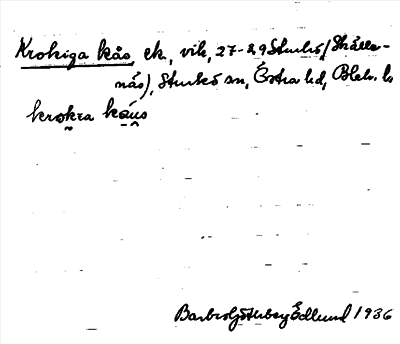 Krokiga kås, ek., vik, 27-29 Sturkö (Skälle-
näs), Sturkö sn, Östra hd, Blek. l.
krokra káus
Barbro Götherberg Edlund 1936